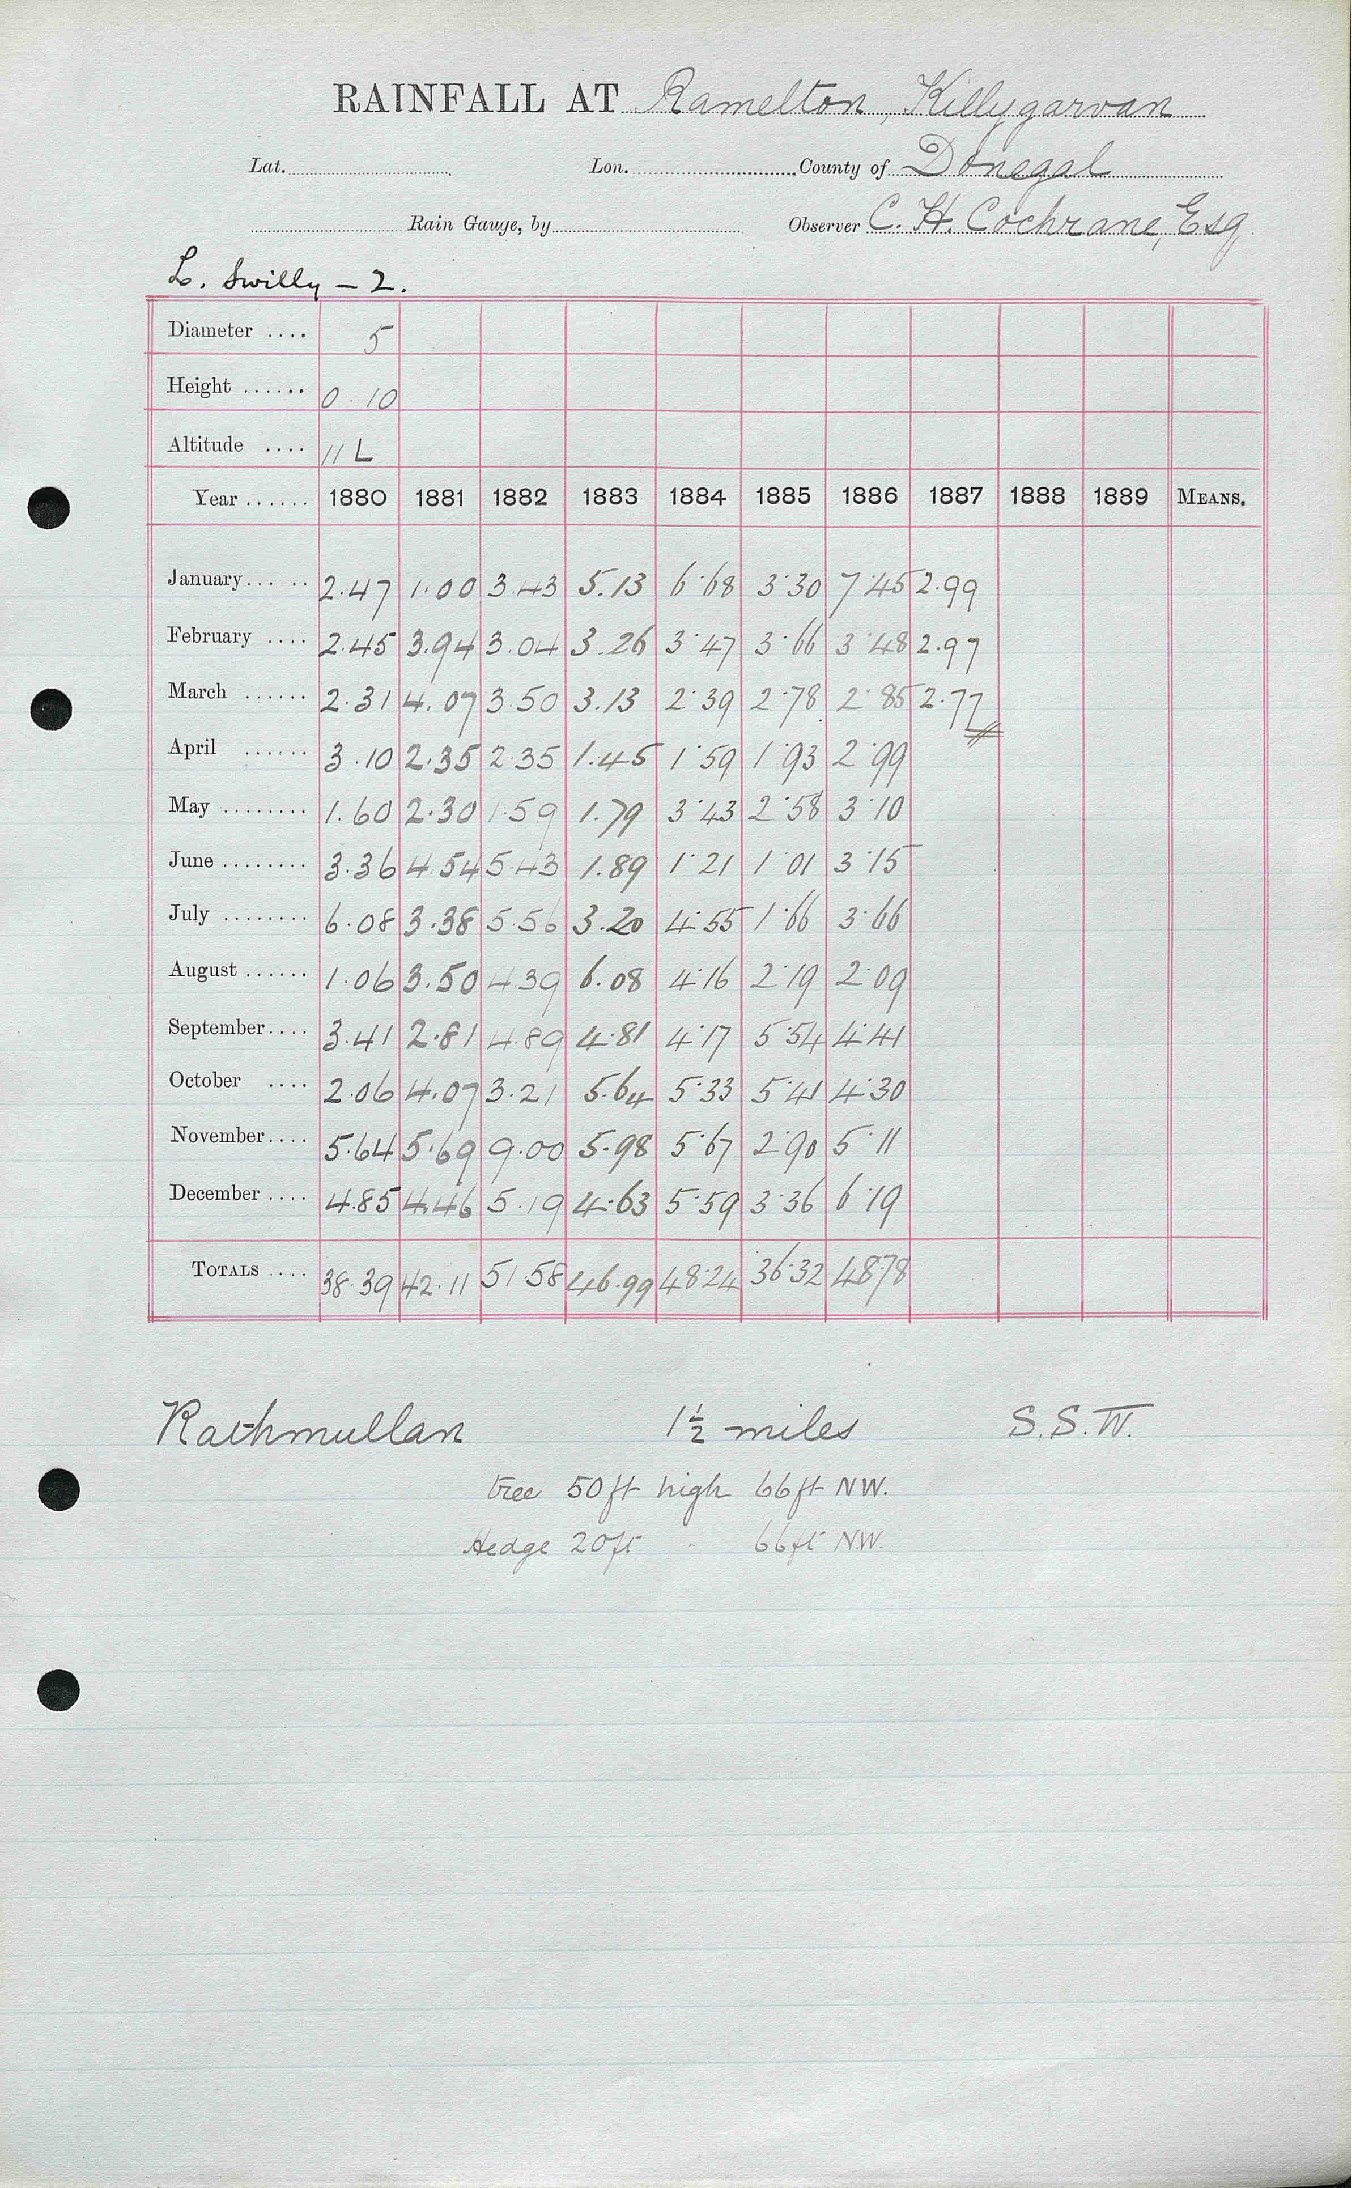 RAINFALL AT Ramelton, Killygarvan
Lat. Lon. County of Donegal
Rain Gauge, by Observer C. H. Cochrane, Esq.
L. Swilly – 2.
Diameter .... 5
Height ...... 0 10
Altitude .... 11 L
Year ...... 1880 1881 1882 1883 1884 1885 1886 1887 1888 1889 MEANS.
January ..... 2.47 1.00 3.43 5.13 6.68 3.30 7.45 2.99
February .... 2.45 3.94 3.04 3.26 3.47 3.66 3.48 2.97
March ...... 2.31 4.07 3.50 3.13 2.39 2.78 2.85 2.77
April ...... 3.10 2.35 2.35 1.45 1.59 1.93 2.99
May ........ 1.60 2.30 1.59 1.79 3.43 2.58 3.10
June ........ 3.36 4.54 5.43 1.89 1.21 1.01 3.15
July ........ 6.08 3.38 5.56 3.20 4.55 1.66 3.66
August ...... 1.06 3.50 4.39 6.08 4.16 2.19 2.09
September .... 3.41 2.81 4.89 4.81 4.17 5.54 4.41
October .... 2.06 4.07 3.21 5.64 5.33 5.41 4.30
November .... 5.64 5.69 9.00 5.98 5.67 2.90 5.11
December .... 4.85 4.46 5.19 4.63 5.59 3.36 6.19
TOTALS .... 38.39 42.11 51 58 46.99 48.24 36.32 48.78
Rathmullan 1½ miles S.S.W.
tree 50ft high 66ft NW.
Hedge 20ft " 66ft NW.